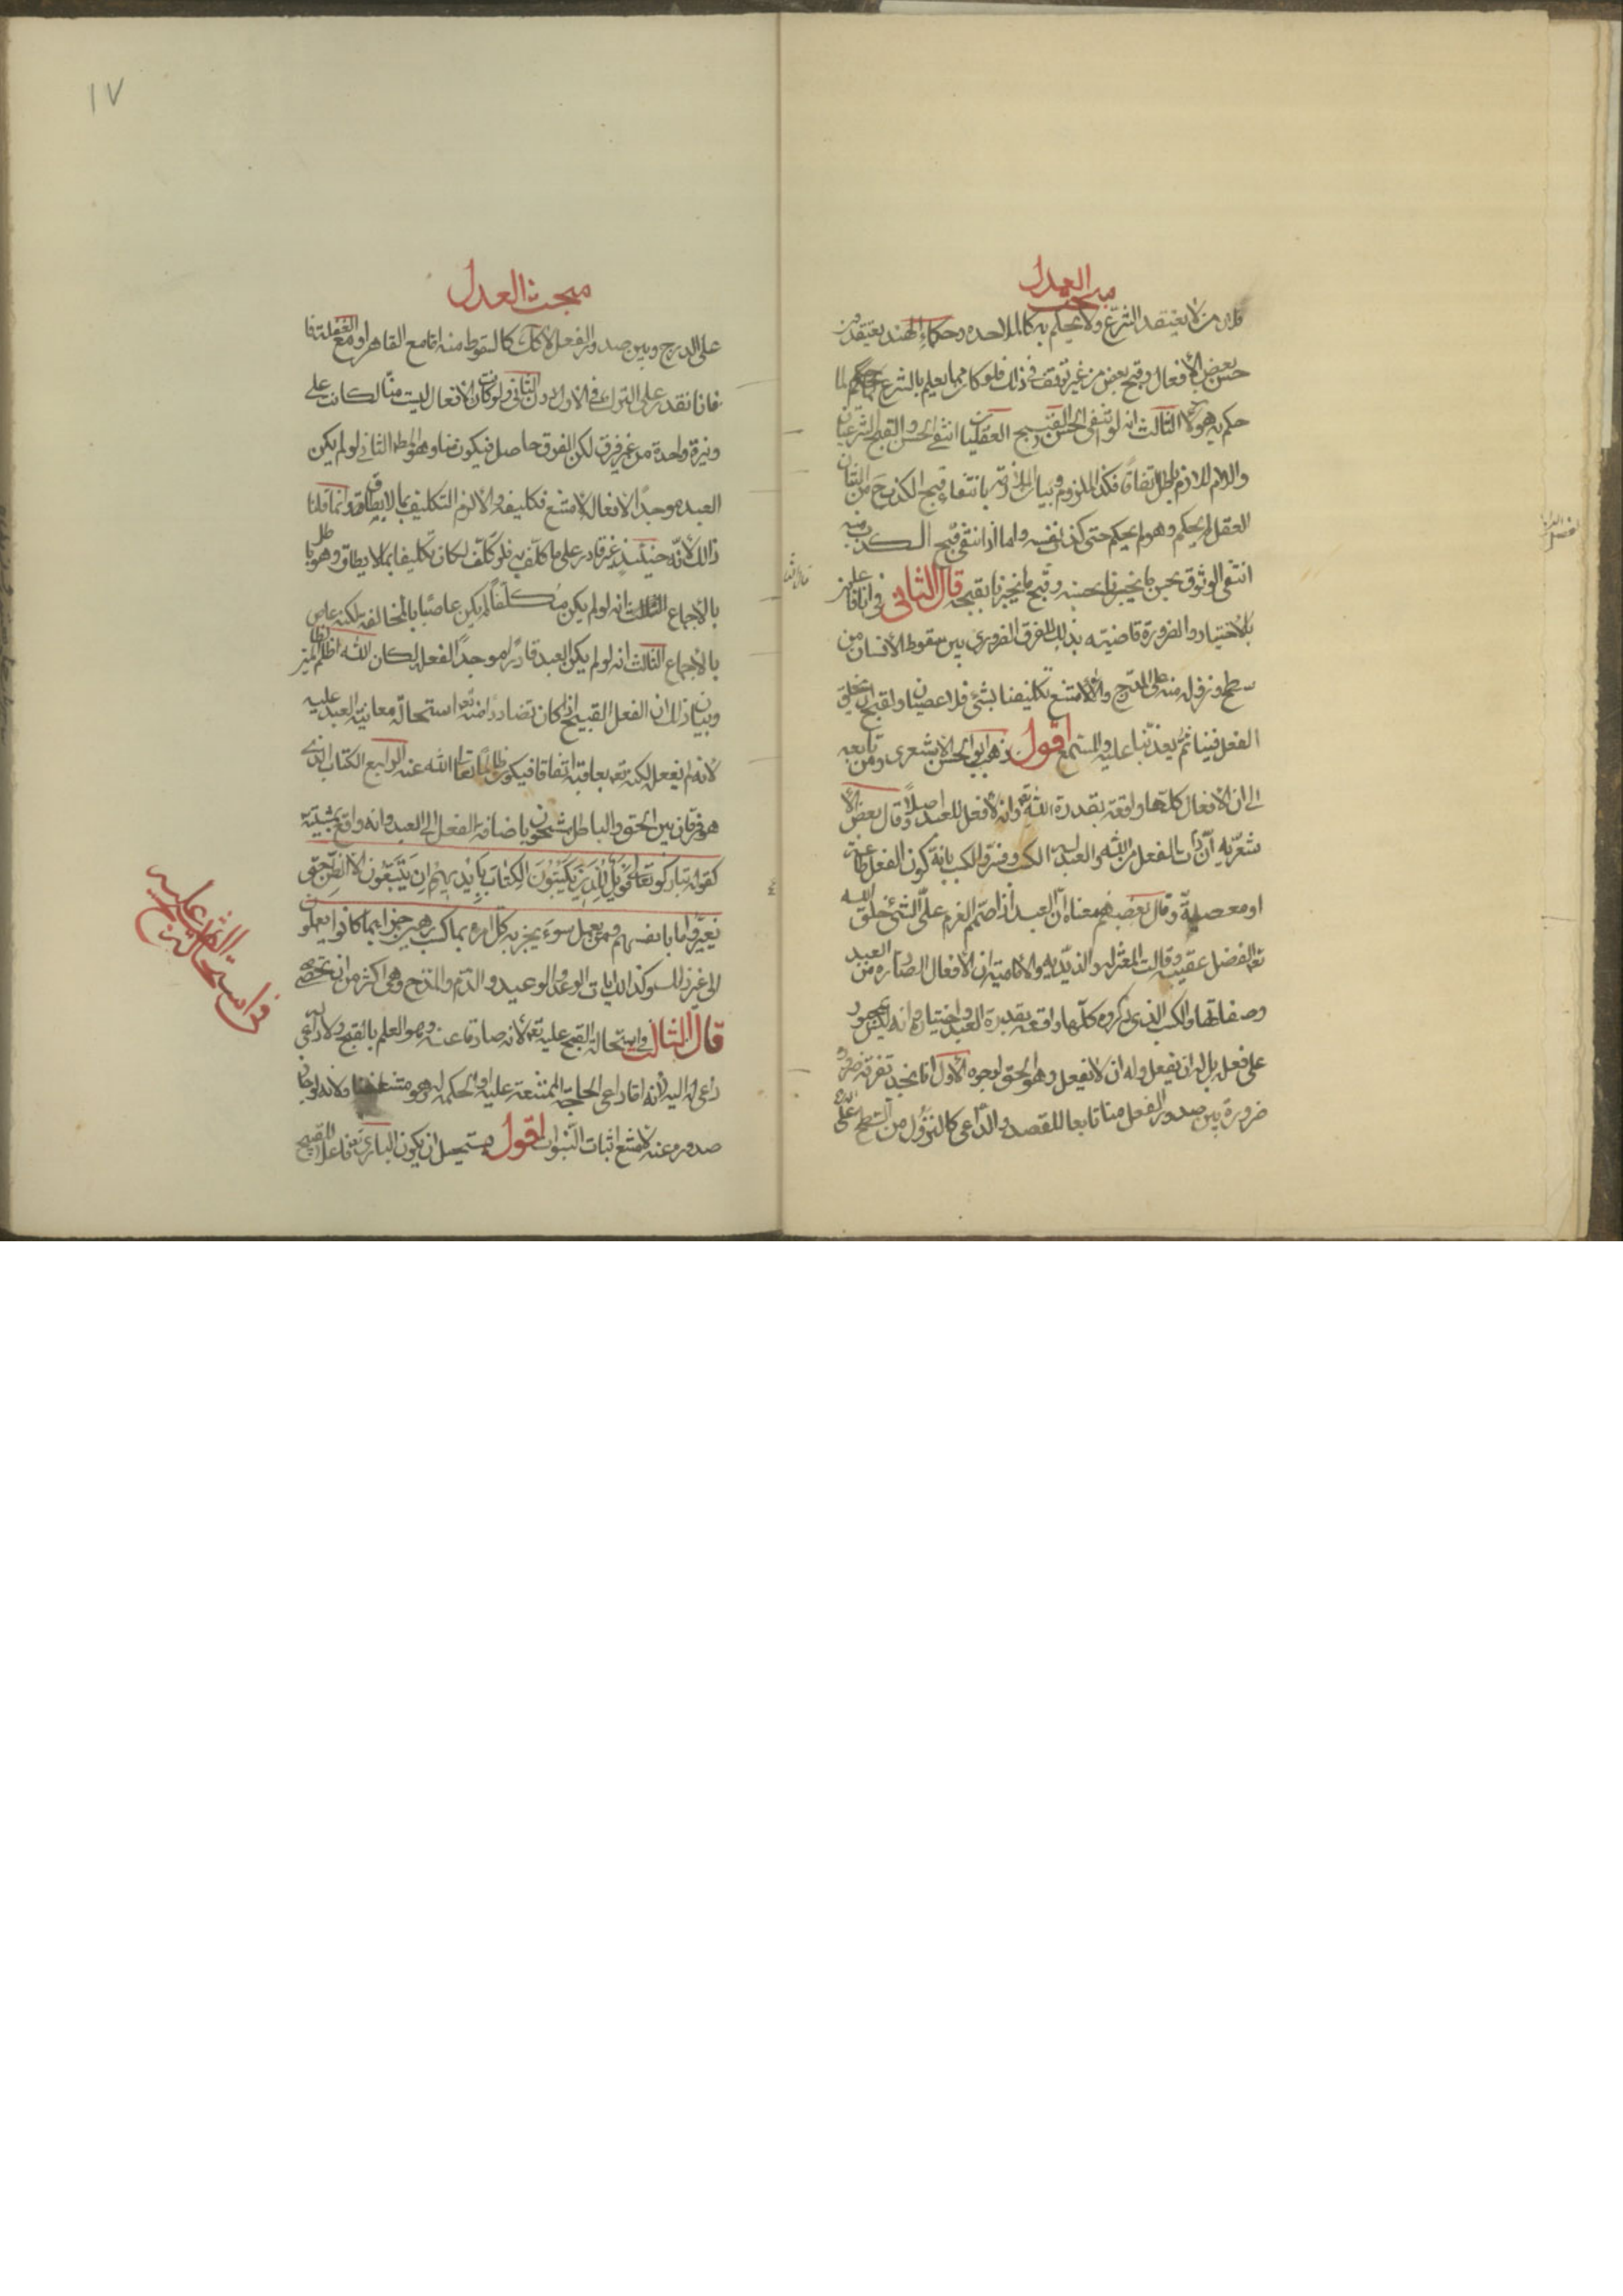 مبحث العدل
فلان من لا يعتقد الشرع ولا يحكم به كالملاحده وحكماء الهند يعتقدون
حسن بعض الأفعال وقبح بعض من غير توقف في ذلك فلو كان مما يعلم بالشرع لما
حكم به هؤلاء الثالث انه لو انتفى الحسن والقبح العقليان انتفى الحسن والقبح الشرعيان
واللازم باطل اتفاقا فكذا الملزوم وبيان الملازمة بانتفاء قبح الكذب ح من الشارع
العقل لم يحكم وهو لم يحكم حتى كذب نفسه واما اذا انتفى قبح الكذب منه
انتفى الوثوق بحسن ما يخبرنا بحسنه وقبح ما يخبرنا بقبحه قال الثاني في انا فاعلون
بالاختيار والضرورة قاضية بذلك للفرق الضروري بين سقوط الأنسان من
سطح ونزوله منه على الدرج والا لامتنع تكليفنا بشئ فلا عصيان ولقبح ان يخلق
الفعل فينا ثم يعذبنا عليه وللسمع اقول ذهب ابو الحسن الاشعري ومن تابعه
الى ان الافعال كلها واقعة بقدرة الله تع وانه لا فعل للعبد اصلا وقال بعض الا
شعريه ان ذات الفعل من الله والعبد له الكسب وفسروا الكسب بانه كون الفعل طاعة
او معصية وقال بعضهم معناه ان العبد اذا صمم العزم على الشئ خلق الله
تع الفعل عقيبه وقالت المعتزله والزيديه والاماميه ان الافعال الصادره من العبد
وصفاتها والكسب الذي ذكروه كلها واقعه بقدرة العبد واختياره وانه ليس بمجبور
على فعله بل له ان يفعل وله ان لا يفعل وهو الحق لوجوه الأول انا نجد تفرقة
ضرورة بين صدور الفعل منا تابعا للقصد والداعي كالنزول من السطح على
مبحث العدل
على الدرج وبين صدور الفعل لا كذلك كالسقوط منه اما مع القاهر او مع الغفلة
فانا نقدر على الترك في الاول دون الثاني ولو كانت الافعال ليست منا لكانت على
وتيرة واحدة من غير فرق لكن الفرق حاصل فيكون منا وهو المط الثاني لو لم يكن
العبد موجدا لافعاله لامتنع تكليفه والا لزم التكليف بما لا يطاق وانما قلنا
ذالك لأنه حينئذ غير قادر على ما كلف به فلو كلف لكان تكليفا بما لا يطاق وهو باطل
بالأجماع الثالث انه لو لم يكن مكلفا لم يكن عاصيا بالمخالفه لكنه عاص
بالأجماع الثالث انه لو لم يكن العبد قادرا موجدا لفعله لكان الله اظلم الظالمين
وبيان ذالك ان الفعل القبيح اذا كان صادرا منه تع استحالة معاقبة العبد عليه
لانه لم يفعل لكنه تع يعاقبه اتفاقا فيكون ظالما تعالى الله عنه الرابع الكتاب الذي
هو فرقان بين الحق والباطل مشحون باضافة الفعل الى العبد وانه واقع بمشيته
كقوله تبارك وتعالى فويل للذين يكتبون الكتاب بايديهم ان يتبعون الا الظن حتى
يغيروا ما بانفسهم ومن يعمل سوء يجز به كل امرء بما كسب رهين جزاء بما كانوا يعملون
الى غير ذلك وكذا ايات الوعد والوعيد والذم والمدح وهي اكثر من ان تحصى
قال الثالث في استحالة القبح عليه تع لانه صارفا عنه وهو العلم بالقبح ولا داعي
داعي له اليه لأنه اما داعي الحاجة الممتنعة عليه او الحكمه له وهو منتف هنا ولانه لو جاز
صدوره عنه لامتنع اثبات النبوات اقول يستحيل ان يكون الباري تع فاعلا للقبيح
في استحالة القبح عليه
١٧